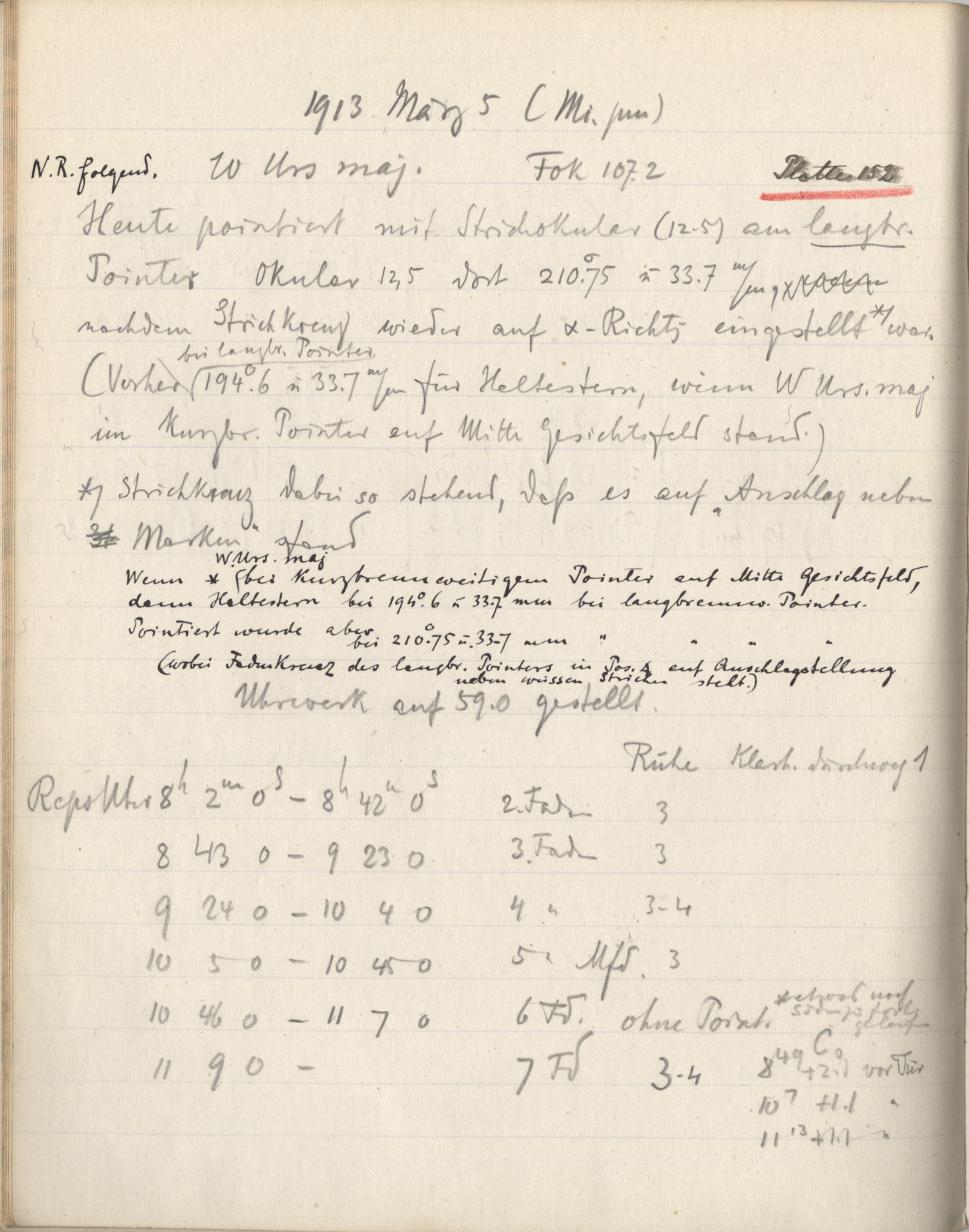 1913 März 5 (Mi.
N.R. folgend. W Urs maj. Fok 107.2 Platte 152
Heute pointiert mit Strichokular (12.5) am langbr.
Pointer Okular 12,5 dort 210°.75 u 33.7 m/m,
nachdem Strichkreuz wieder auf α-Richtg eingestellt *) war.
bei langbr. Pointer
(Vorher 194°.6 u 33.7 m/m für Haltestern, wenn W Urs. maj
im Kurzbr. Pointer auf Mitte Gesichtsfeld stand.)
*) Strichkreuz dabei so stehend, daß es auf „Anschlag neben
Marken" stand
W. Urs. maj
Wenn * bei Kurzbrennweitigem Pointer auf Mitte Gesichtsfeld,
dann Haltestern bei 194°.6 u 33.7 mm bei langbrennw. Pointer.
Pointiert wurde aber
bei 210°.75 u. 33.7 mm " " " "
(wobei Fadenkreuz des langbr. Pointers in Pos. auf Anschlagstellung
neben weissen Strichen steht.)
Uhrwerk auf 59.0 gestellt.
Ruhe Klarh. durchweg 1
8h 2m 0s – 8h 42m 0s 2. Faden 3
8 43 0 – 9 23 0 3. Faden 3
9 24 0 – 10 4 0 4 " 3-4
10 5 0 – 10 45 0 5 " Mfd. 3
10 46 0 – 11 7 0 6 Fd. ohne Point. * etwas nach
11 9 0 – 7 Fd 3-4 8 49 vor Tür
10 7 +1.1 "
11 13 +1.1 "